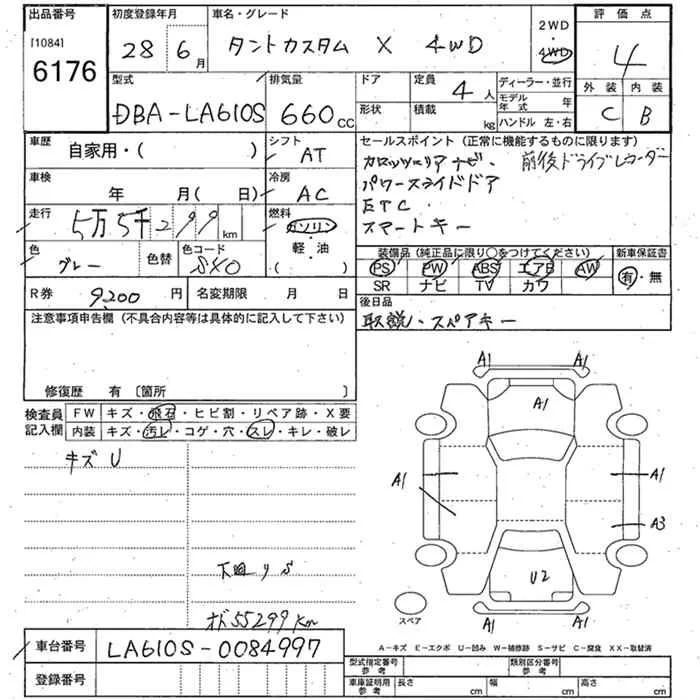 出品番号 初度登録年月 車名・グレード 2WD 評価点
[1084] 28年 6月 タントカスタム X 4WD 4WD 4
6176
型式 排気量 ドア 定員 4人 ディーラー・並行 外装 内装
DBA-LA610S 660cc 形状 積載 kg モデル年式 年 C B
ハンドル 左・右
車歴 自家用・( ) シフト AT セールスポイント(正常に機能するものに限ります)
カロッツェリアナビ. 前後ドライブレコーダー
車検 年 月( 日) 冷房 AC パワースライドドア
走行 5万5千299km 燃料 ガソリン・軽・油 ( ) ETC.
スマートキー
色 グレー 色替 色コード S40 装備品(純正品に限り○をつけてください) 新車保証書
PS PW ABS エアB AW 有・無
R券 9,200円 名変期限 月 日 SR ナビ TV カワ
注意事項申告欄(不具合内容等は具体的に記入して下さい) 後日品
取説・スペアキー
修復歴 有〔箇所 〕
検査員記入欄 FW キズ・飛石・ヒビ割・リペア跡・X要
内装 キズ・汚レ・コゲ・穴・スレ・キレ・破レ
キズ U
下廻りS
オド55299km
A1 A1
A1
A1 A1
A3
U2
A1 A1
スペア
A-キズ E-エクボ U-凹み W-補修跡 S-サビ C-腐食 XX-取替済
車台番号 LA610S-0084997
登録番号
型式指定番号参考 類別区分番号参考
車庫証明用参考 長さ cm 幅 cm 高さ cm